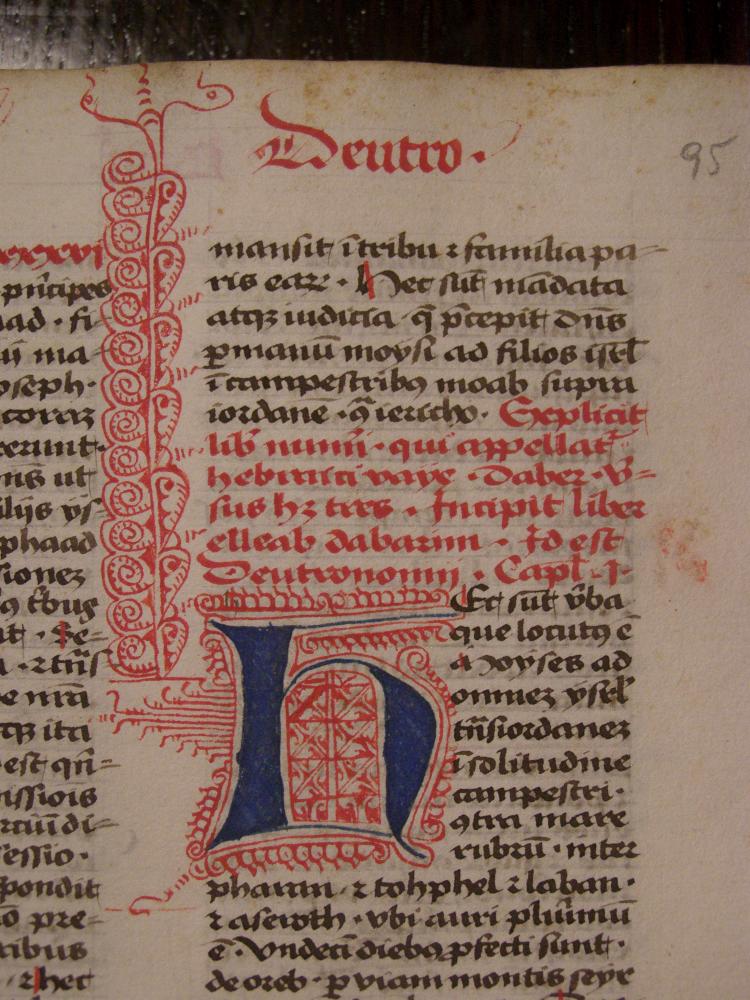 Deutro.
95
xxxvi
prīcipes
aad · fi
ii ma
oseph·
corax
rerunt·
ns ut
lijs ys-
phaad
sionez
ꝯ tͥbus
at · Se=
a · ⁊ trās
e nrāi
tqꝫ ita
est qn̄=
issiois
rcuīdi-
sessio ·
pondit
io pre=
tribus
· ⁊ hec
mansit ī tribu ⁊ familia pa-
ris eaꝝ · Hec sūt mādata
atqꝫ iudicia · q̄ p̄cepit dn̄s
ꝑ manū moysi ad filios isrl̄
ī campestribꝯ moab supra
iordanē · ꝯͣ iericho · Explicit
lib̄ numīi · qui appellat̄
hebraici vaye · Daber · v̄=
sus hꝫ tres · Incipit liber
elleab dabarim · Id est
Deutronomij · Capl̄ · I ·
HEc sūt v̄ba
que locutꝯ ē
Moyses ad
omnez ysrl̄
trn̄siordanez
ī solitudine
campestri ·
ꝯtra mare
rubrū · inter
pharan · ⁊ tohphel ⁊ laban ·
⁊ aseroth · vbi auri plurimū
ē · Vndecī diebꝯ ꝓfecti sunt ·
de oreb · ꝑ viam montis seyr